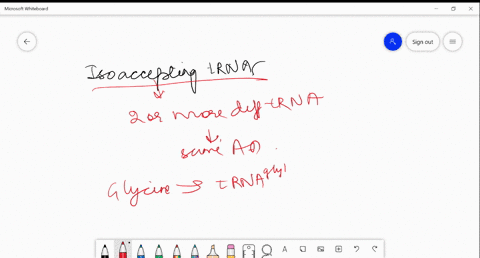 Microsoft Whiteboard
Sign out
Isoaccepting tRNA
2 or more diff tRNA
same AA
Glycine → tRNA^glyl